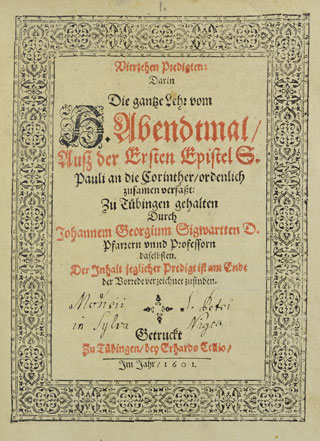 1.
Vierzehen Predigten:
Darin
Die gantze Lehr vom
H. Abendtmal/
Auß der Ersten Epistel S.
Pauli an die Corinther/ordenlich
zusamen verfaßt:
Zu Tübingen gehalten
Durch
Johannem Georgium Sigwartten D.
Pfarrern vnnd Professorn
daselbsten.
Der Inhalt jeglicher Predigt ist am Ende
der Vorrede verzeichnet zufinden.
S. Petri
in Sylva Nigra.
Getruckt
Zu Tübingen/bey Erhardo Cellio/
Im Jahr/1601.